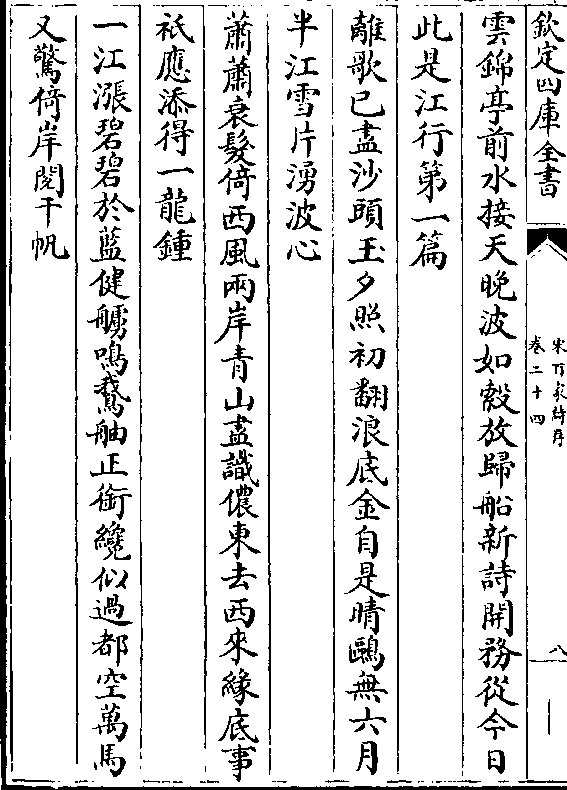 欽定四庫全書
宋百家詩存
卷二十四
八
雲錦亭前水接天晚波如縠放歸船新詩開務從今日
此是江行第一篇
離歌已盡沙頭玉夕照初翻浪底金自是晴鷗無六月
半江雪片湧波心
蕭蕭衰髮倚西風兩岸青山盡識儂東去西來緣底事
祇應添得一龍鍾
一江漲碧碧於藍健艣鳴鵞舳正銜纔似過都空萬馬
又驚倚岸閱千帆